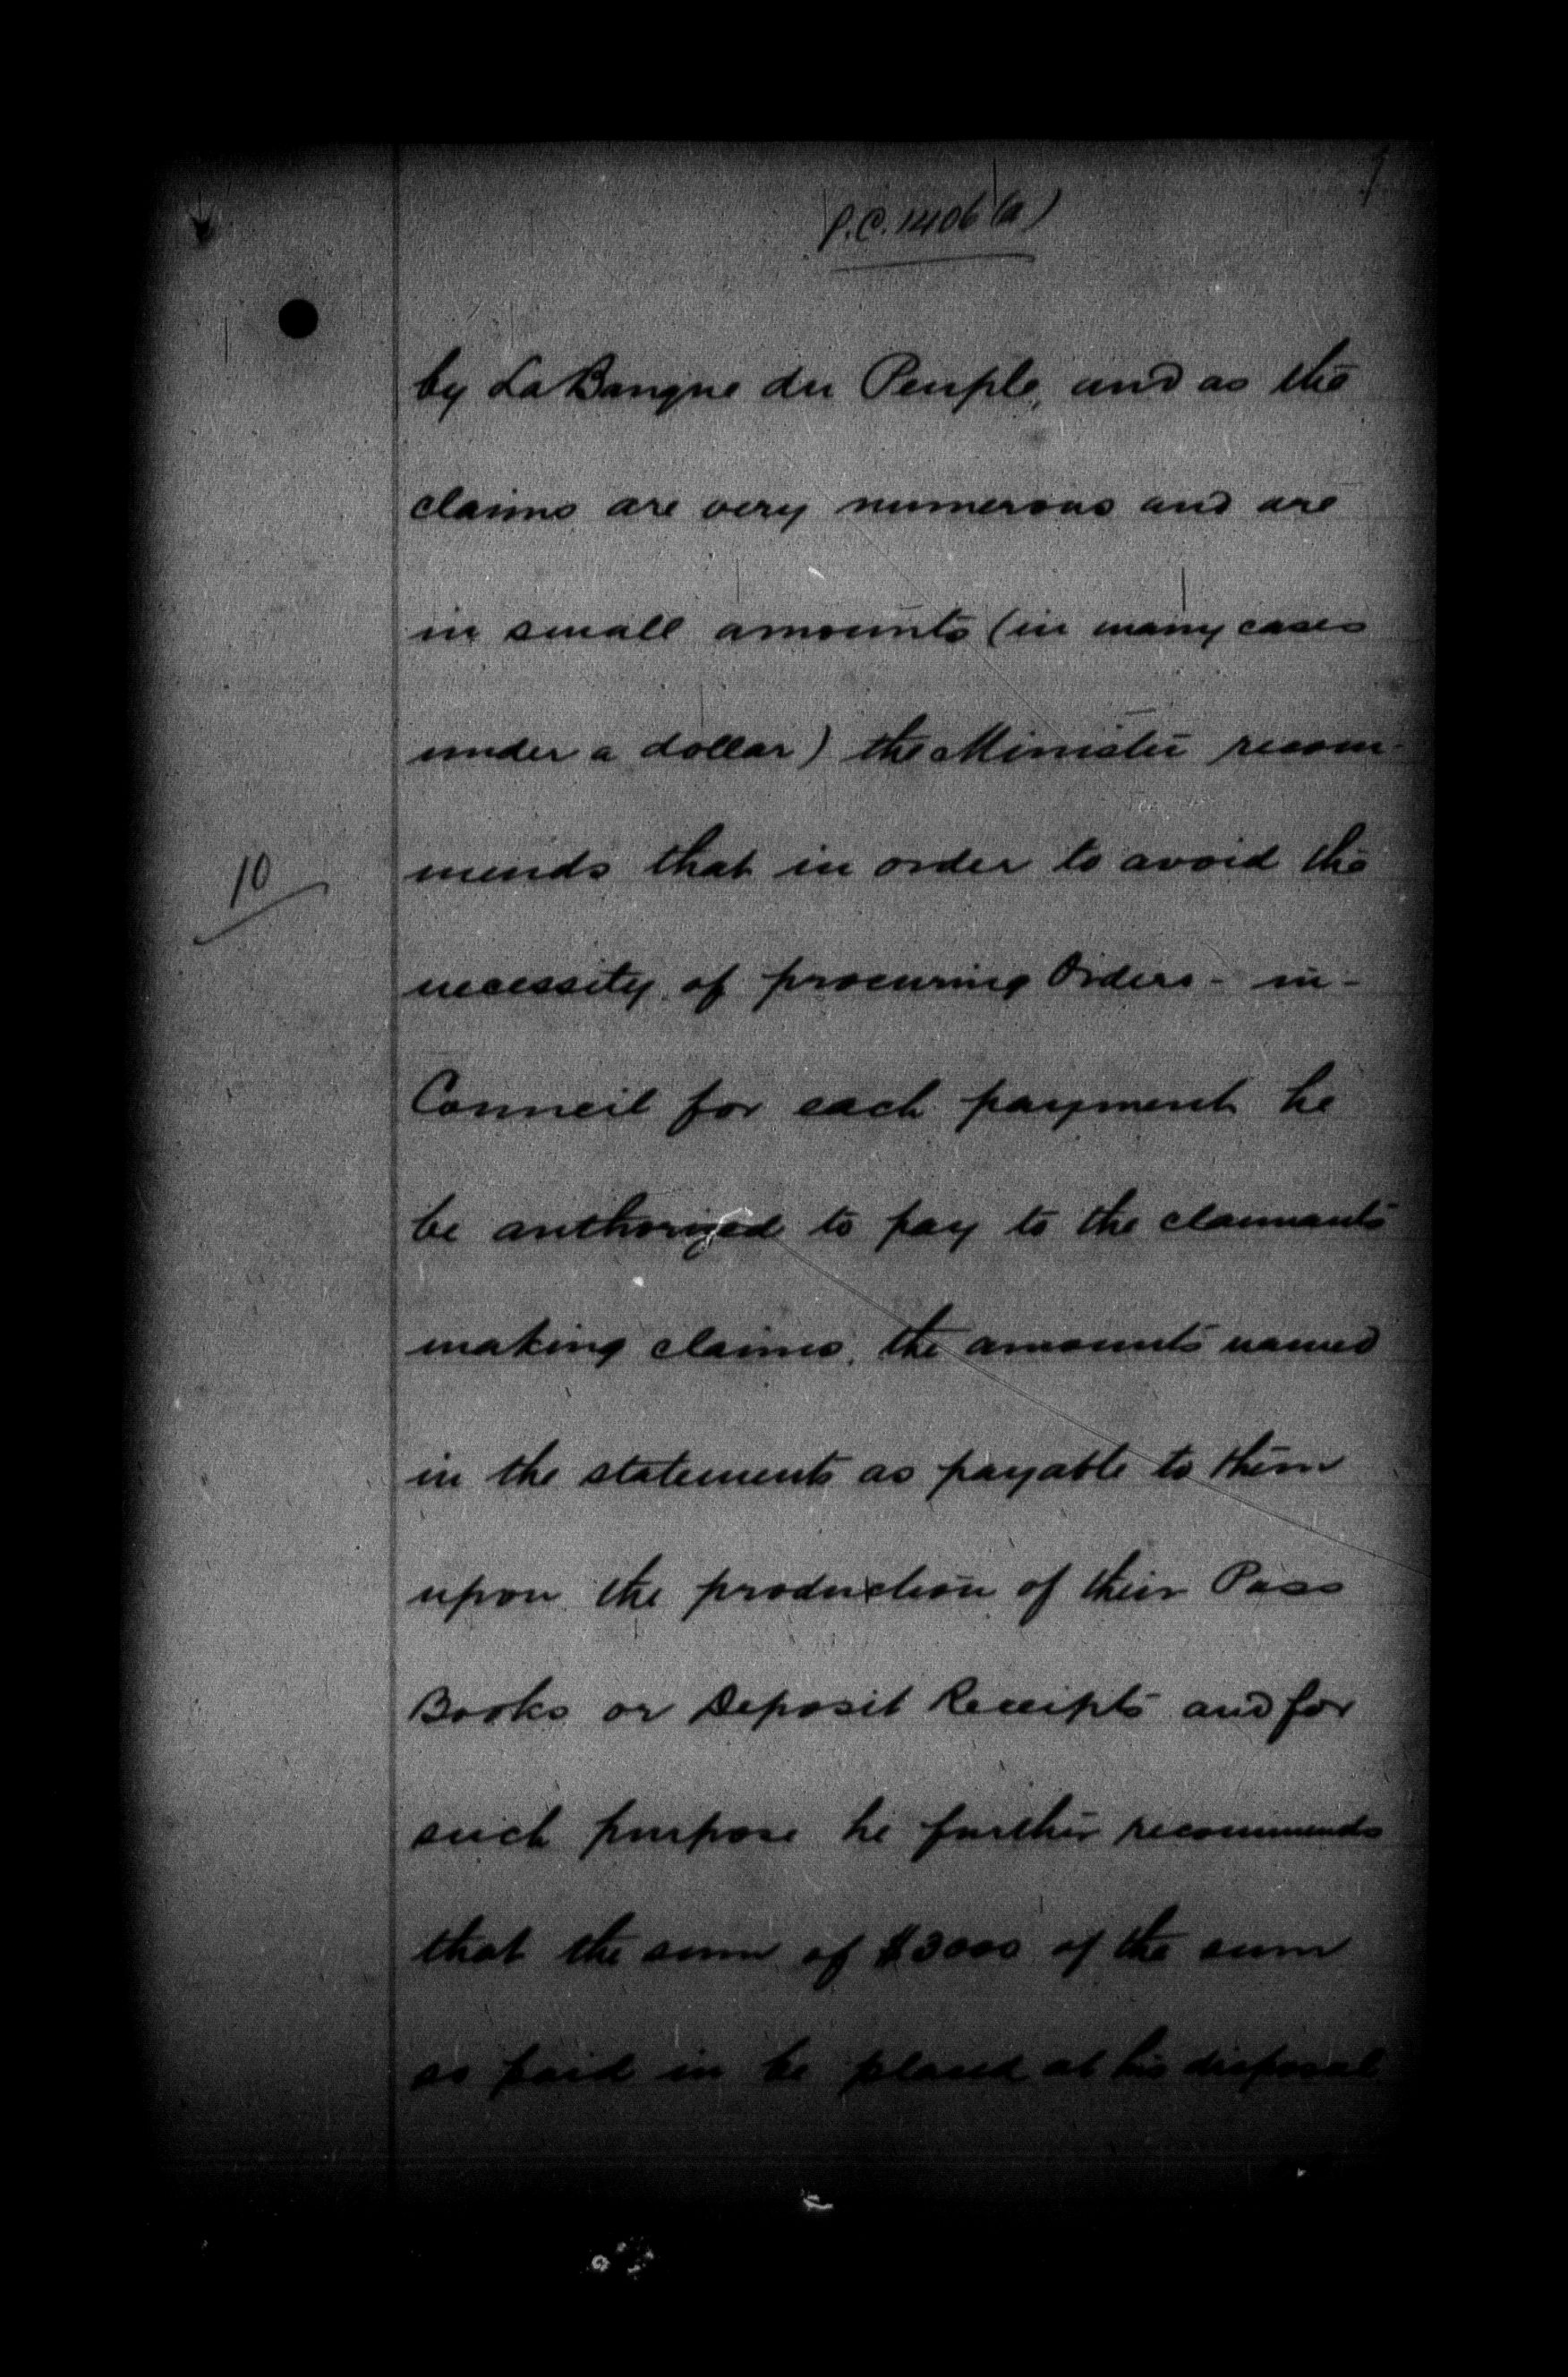 P.C. 1406 (a)
by La Banque du Peuple, and as the
claims are very numerous and are
in small amounts (in many cases
under a dollar) the Minister recom-
mends that in order to avoid the
10
necessity of procuring Orders-in-
Council for each payment he
be authorized to pay to the claimants
making claims, the amounts named
in the statements as payable to them
upon the production of their Pass
Books or Deposit Receipts and for
such purpose he further recommends
that the sum of $3000 of the sum
so paid in be placed at his disposal